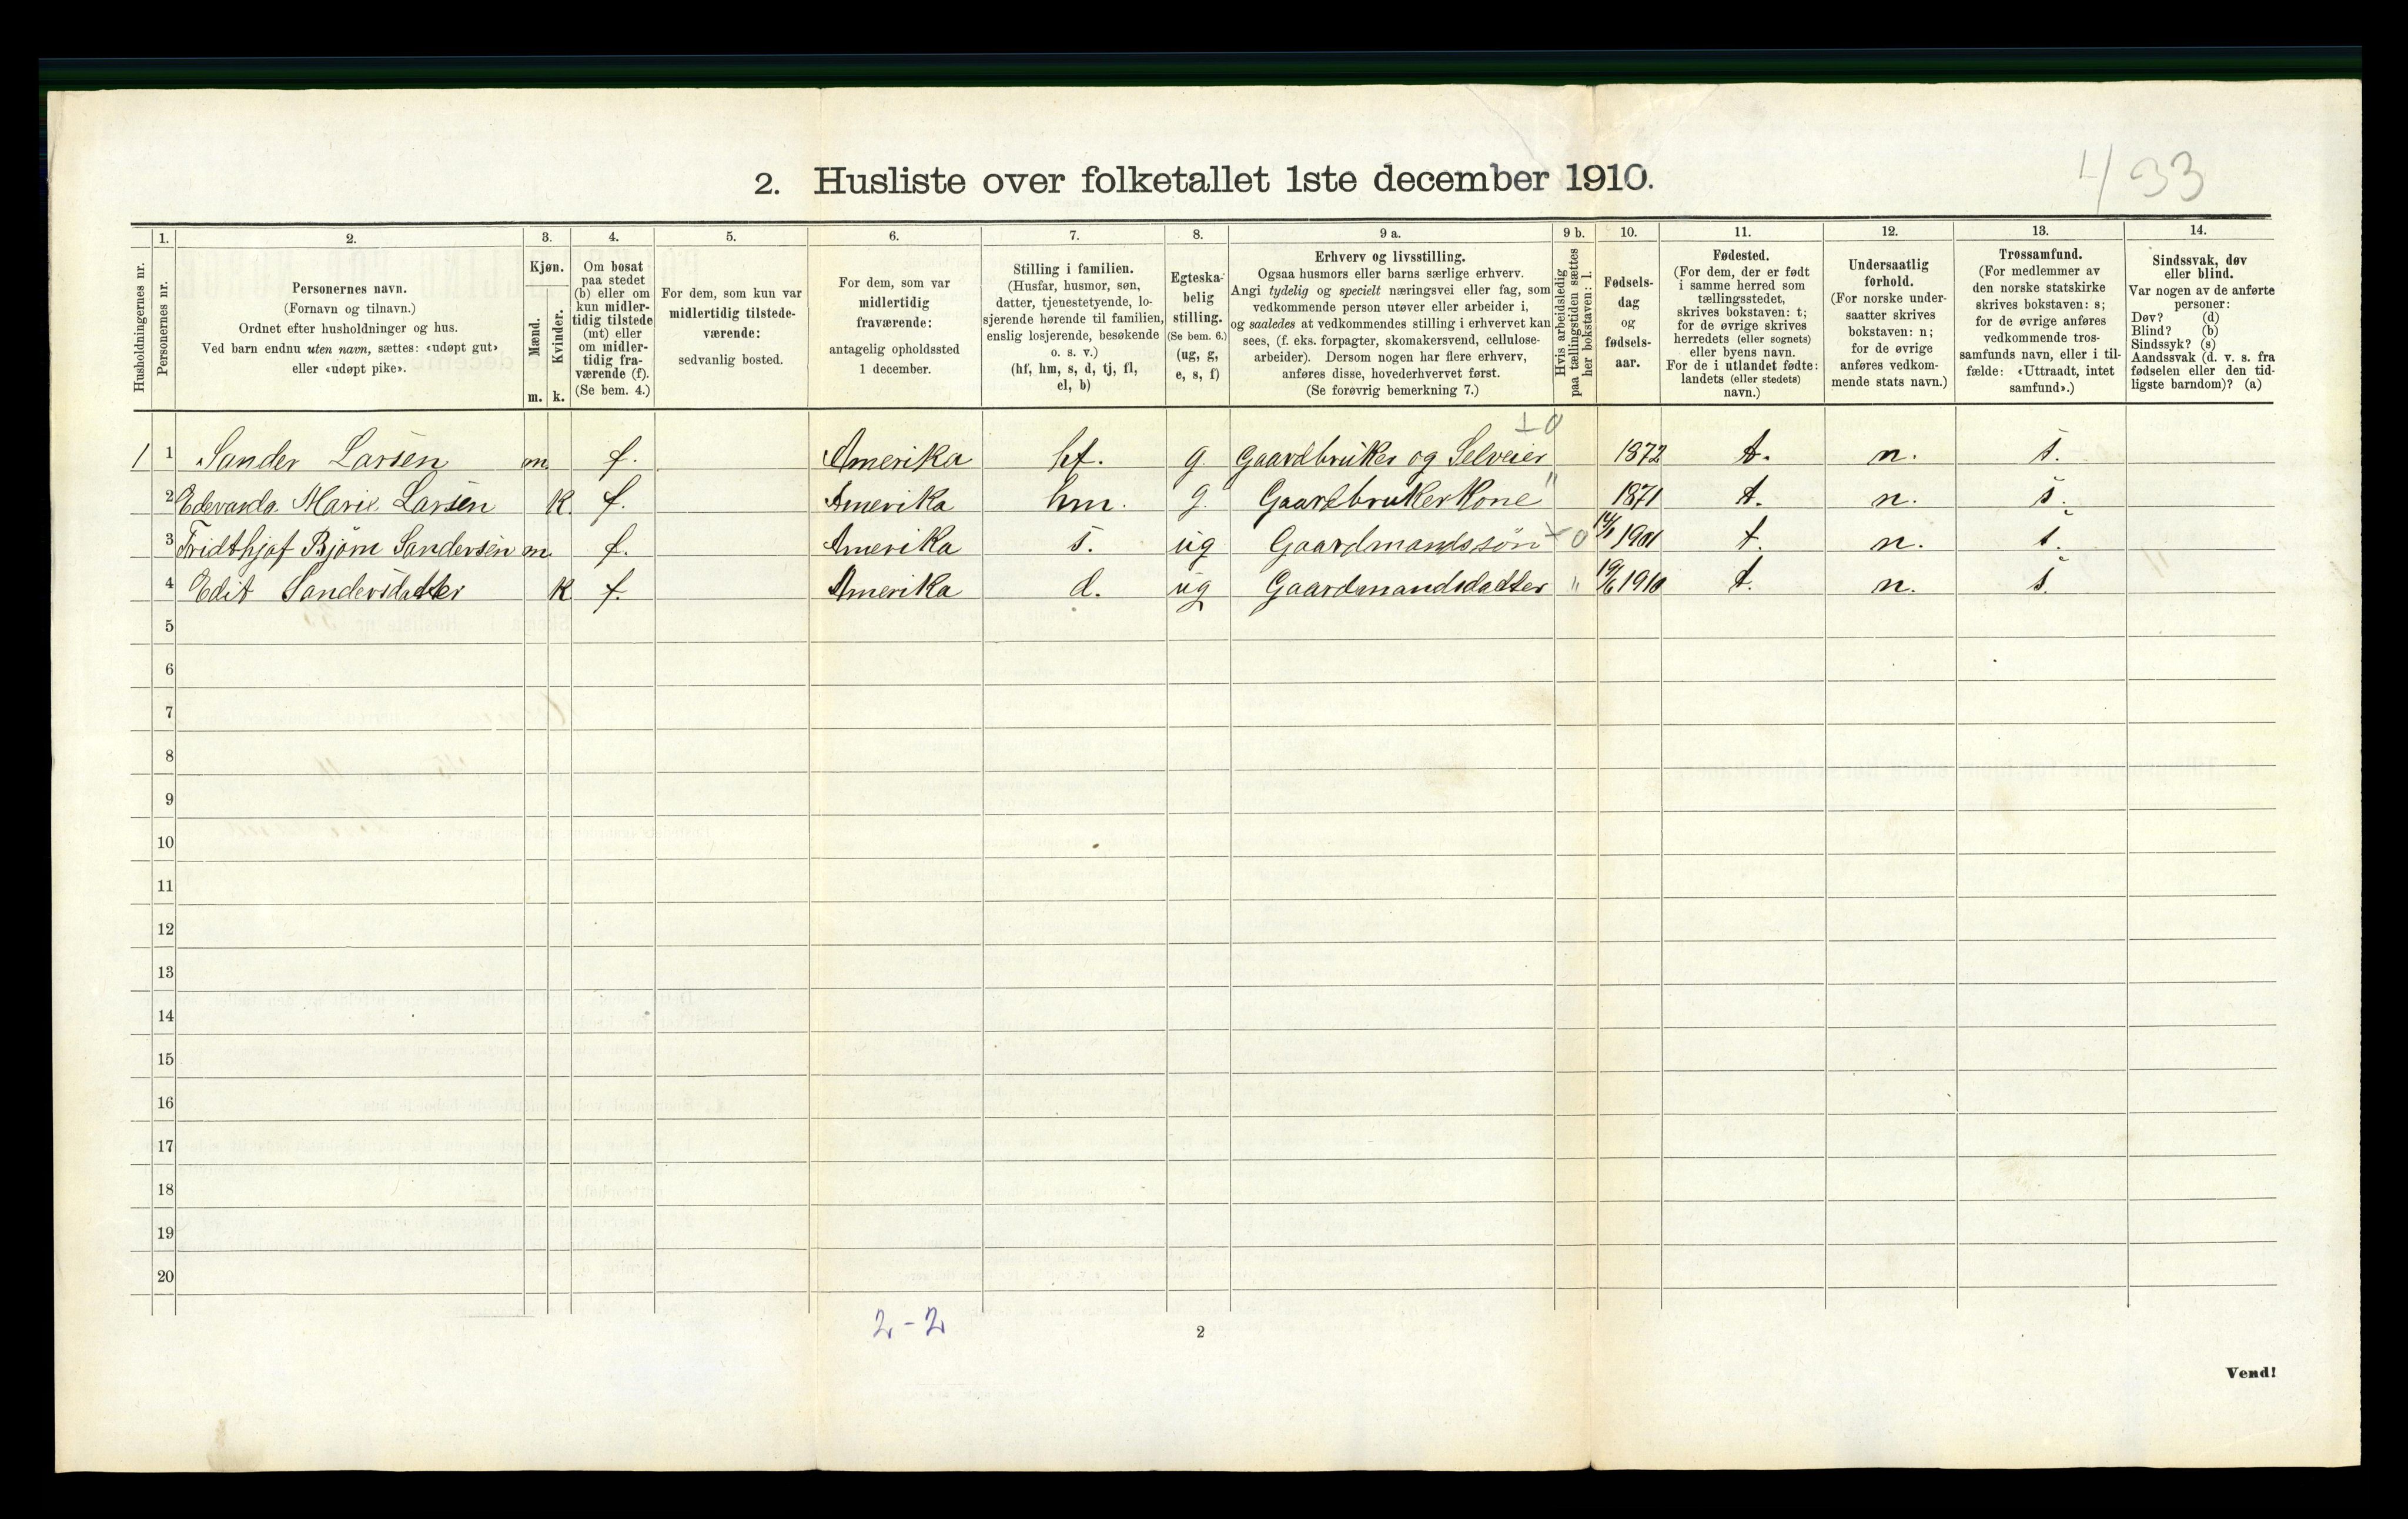 4/33
2. Husliste over folketallet 1ste december 1910.
Husholdningernes nr.
1.
Personernes nr.
2.
Personernes navn.
(Fornavn og tilnavn.)
Ordnet efter husholdninger og hus.
Ved barn endnu uten navn, sættes: «udøpt gut»
eller «udøpt pike».
3.
Kjøn.
Mænd.
Kvinder.
m. k.
4.
Om bosat
paa stedet
(b) eller om
kun midler-
tidig tilstede
(mt) eller
om midler-
tidig fra-
værende (f).
(Se bem. 4.)
5.
For dem, som kun var
midlertidig tilstede-
værende:
sedvanlig bosted.
6.
For dem, som var
midlertidig
fraværende:
antagelig opholdssted
1 december.
7.
Stilling i familien.
(Husfar, husmor, søn,
datter, tjenestetyende, lo-
sjerende hørende til familien,
enslig losjerende, besøkende
o. s. v.)
(hf, hm, s, d, tj, fl,
el, b)
8.
Egteska-
belig
stilling.
(Se bem. 6.)
(ug, g,
e, s, f)
9 a.
Erhverv og livsstilling.
Ogsaa husmors eller barns særlige erhverv.
Angi tydelig og specielt næringsvei eller fag, som
vedkommende person utøver eller arbeider i,
og saaledes at vedkommendes stilling i erhvervet kan
sees, (f. eks. forpagter, skomakersvend, cellulose-
arbeider). Dersom nogen har flere erhverv,
anføres disse, hovederhvervet først.
(Se forøvrig bemerkning 7.)
9 b.
Hvis arbeidsledig
paa tællingstiden sættes
her bokstaven: l.
10.
Fødsels-
dag
og
fødsels-
aar.
11.
Fødested.
(For dem, der er født
i samme herred som
tællingsstedet,
skrives bokstaven: t;
for de øvrige skrives
herredets (eller sognets)
eller byens navn.
For de i utlandet fødte:
landets (eller stedets)
navn.)
12.
Undersaatlig
forhold.
(For norske under-
saatter skrives
bokstaven: n;
for de øvrige
anføres vedkom-
mende stats navn.)
13.
Trossamfund.
(For medlemmer av
den norske statskirke
skrives bokstaven: s;
for de øvrige anføres
vedkommende tros-
samfunds navn, eller i til-
fælde: «Uttraadt, intet
samfund».)
14.
Sindssvak, døv
eller blind.
Var nogen av de anførte
personer:
Døv? (d)
Blind? (b)
Sindssyk? (s)
Aandssvak (d. v. s. fra
fødselen eller den tid-
ligste barndom)? (a)
1 1 Sander Larsen m. f. Amerika hf. g. Gaardbruker og Selveier 1872 t. n. s.
2 Edevarda Marie Larsen k. f. Amerika hm. g. Gaardbrukerkone " 1871 t. n. s.
3 Fridthjof Bjørn Sandersen m. f. Amerika s. ug Gaardmandssøn 1901 t. n. s.
4 Edit Sandersdatter k f. Amerika d. ug Gaardmandsdatter " 19/6 1910 t. n. s.
5
6
7
8
9
10
11
12
13
14
15
16
17
18
19
20
2-2
2
Vend!